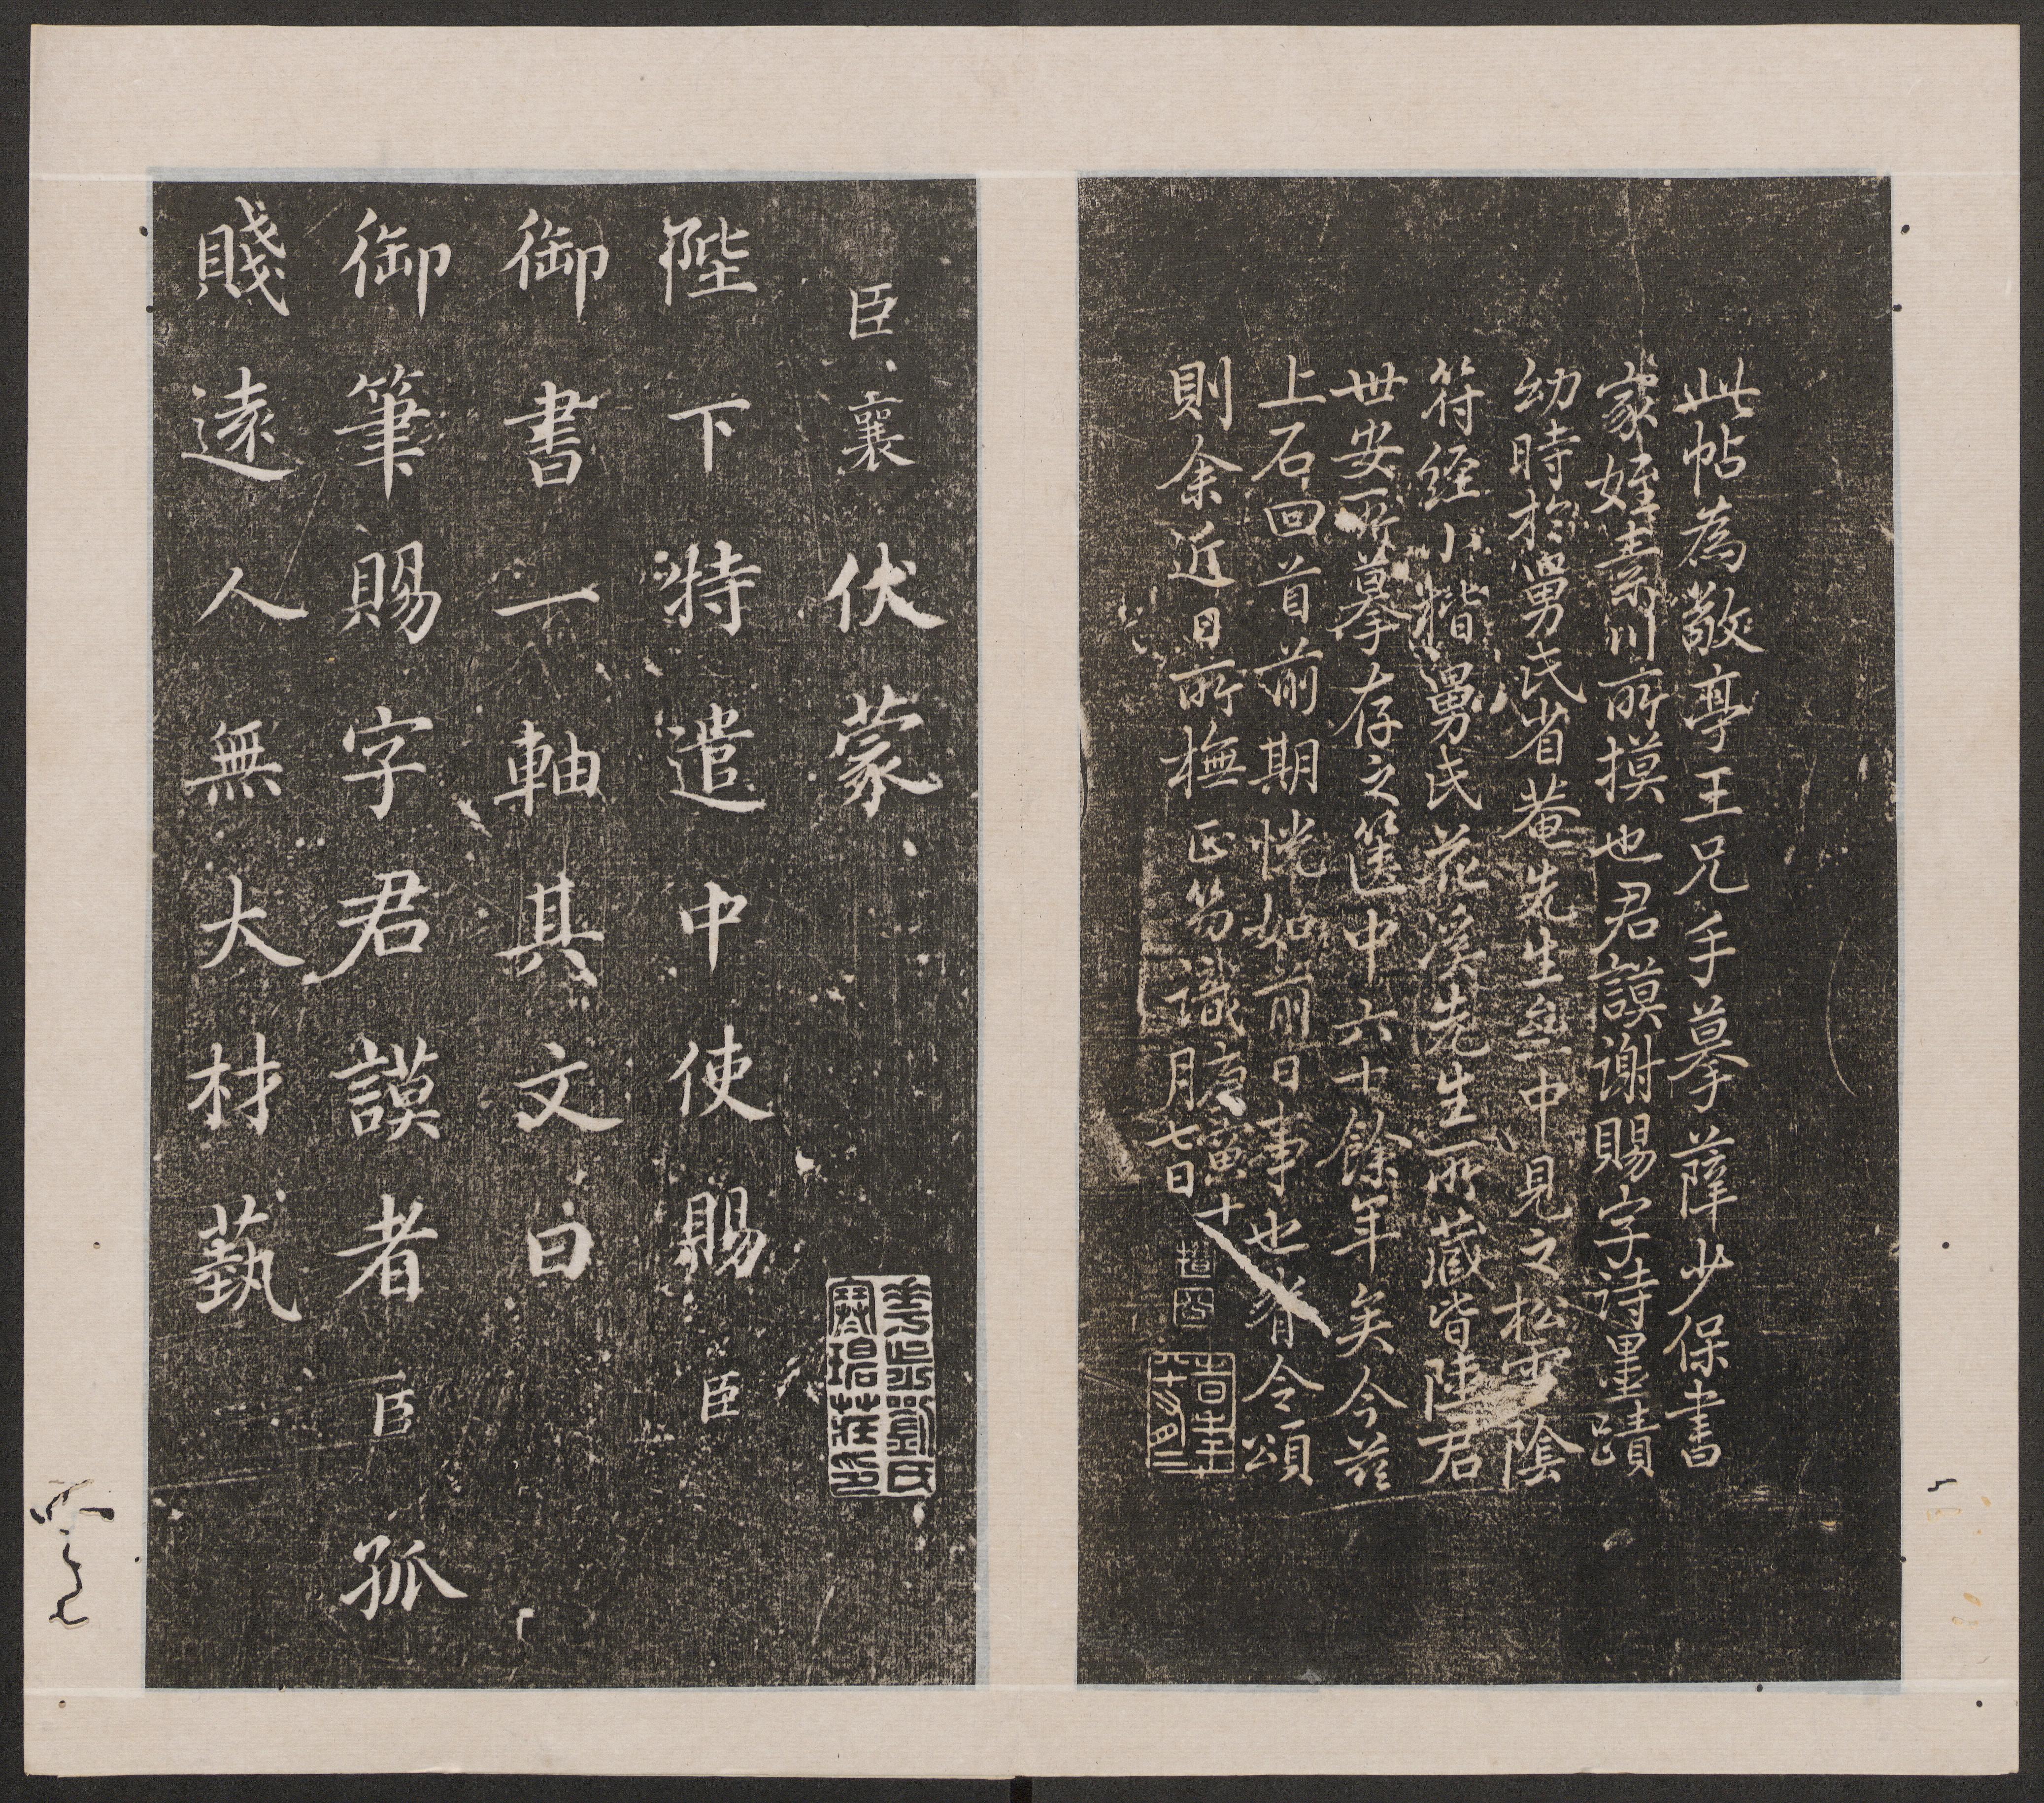 此帖為敬亭王兄手摹薛少保書
家姪素川所摸也君謨謝賜字詩墨蹟
幼時於舅氏省菴先生壑中見之松雪陰
符經小楷舅氏花溪先生所藏皆陸君
世安所摹存之篋中六十餘年矣今茲
上石回首前期恍如前日事也者令頌
則余近日所橅正笏識庚寅十
月七日
臣襄伏蒙
陛下特遣中使賜臣
御書一軸其文曰
御筆賜字君謨者臣孤
賤遠人無大材藝